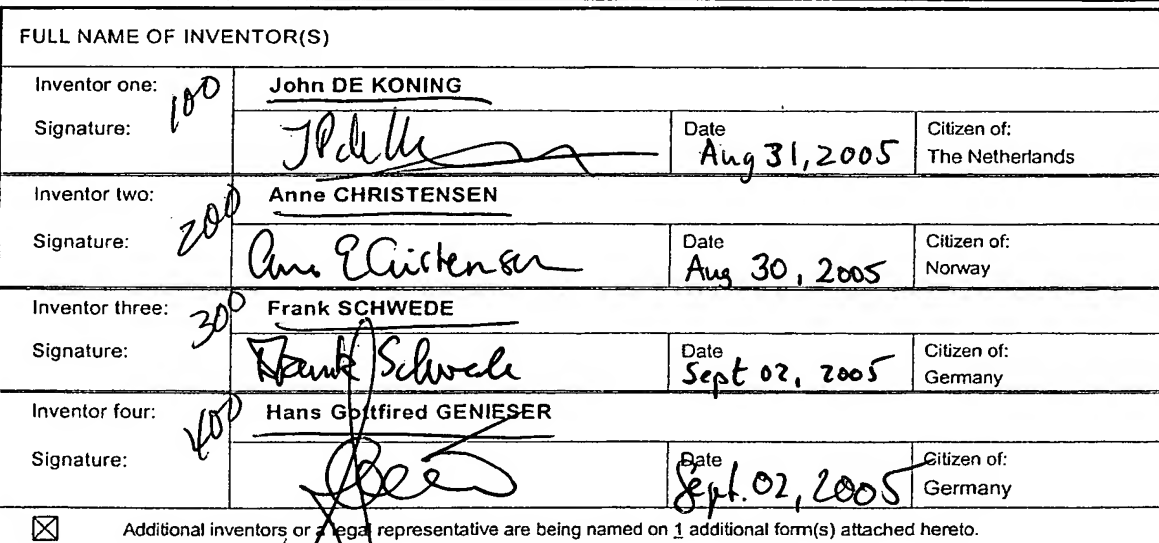 FULL NAME OF INVENTOR(S)
Inventor one: 100 John DE KONING
Signature: Date Aug 31, 2005 Citizen of: The Netherlands
Inventor two: 200 Anne CHRISTENSEN
Signature: Anne E Christensen Date Aug 30, 2005 Citizen of: Norway
Inventor three: 300 Frank SCHWEDE
Signature: Frank Schwede Date Sept 02, 2005 Citizen of: Germany
Inventor four: 400 Hans Gottfired GENIESER
Signature: Date Sept. 02, 2005 Citizen of: Germany
Additional inventors or a legal representative are being named on 1 additional form(s) attached hereto.